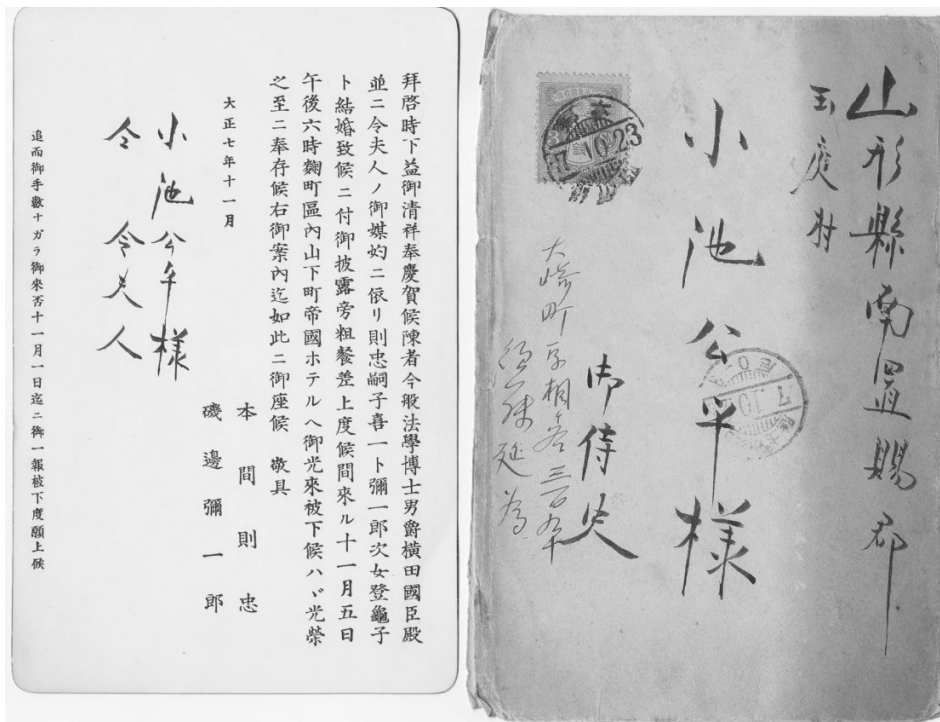 拜啓時下益御清祥奉慶賀候陳者今般法學博士男爵橫田國臣殿
並ニ令夫人ノ御媒妁ニ依リ則忠嗣子喜一ト彌一郎次女登龜子
ト結婚致候ニ付御披露旁粗餐差上度候間來ル十一月五日
午後六時麴町區內山下町帝國ホテルヘ御光來被下候ハヾ光榮
之至ニ奉存候右御案內迄如此ニ御座候 敬具
大正七年十一月
本間則忠
磯邊彌一郎
小池公平樣
令 令夫人
追而御手數ナガラ御來否十一月一日迄ニ御一報被下度願上候
山形縣南置賜郡
玉庭村
小池公平様
御侍史
大崎町字
7.10.23